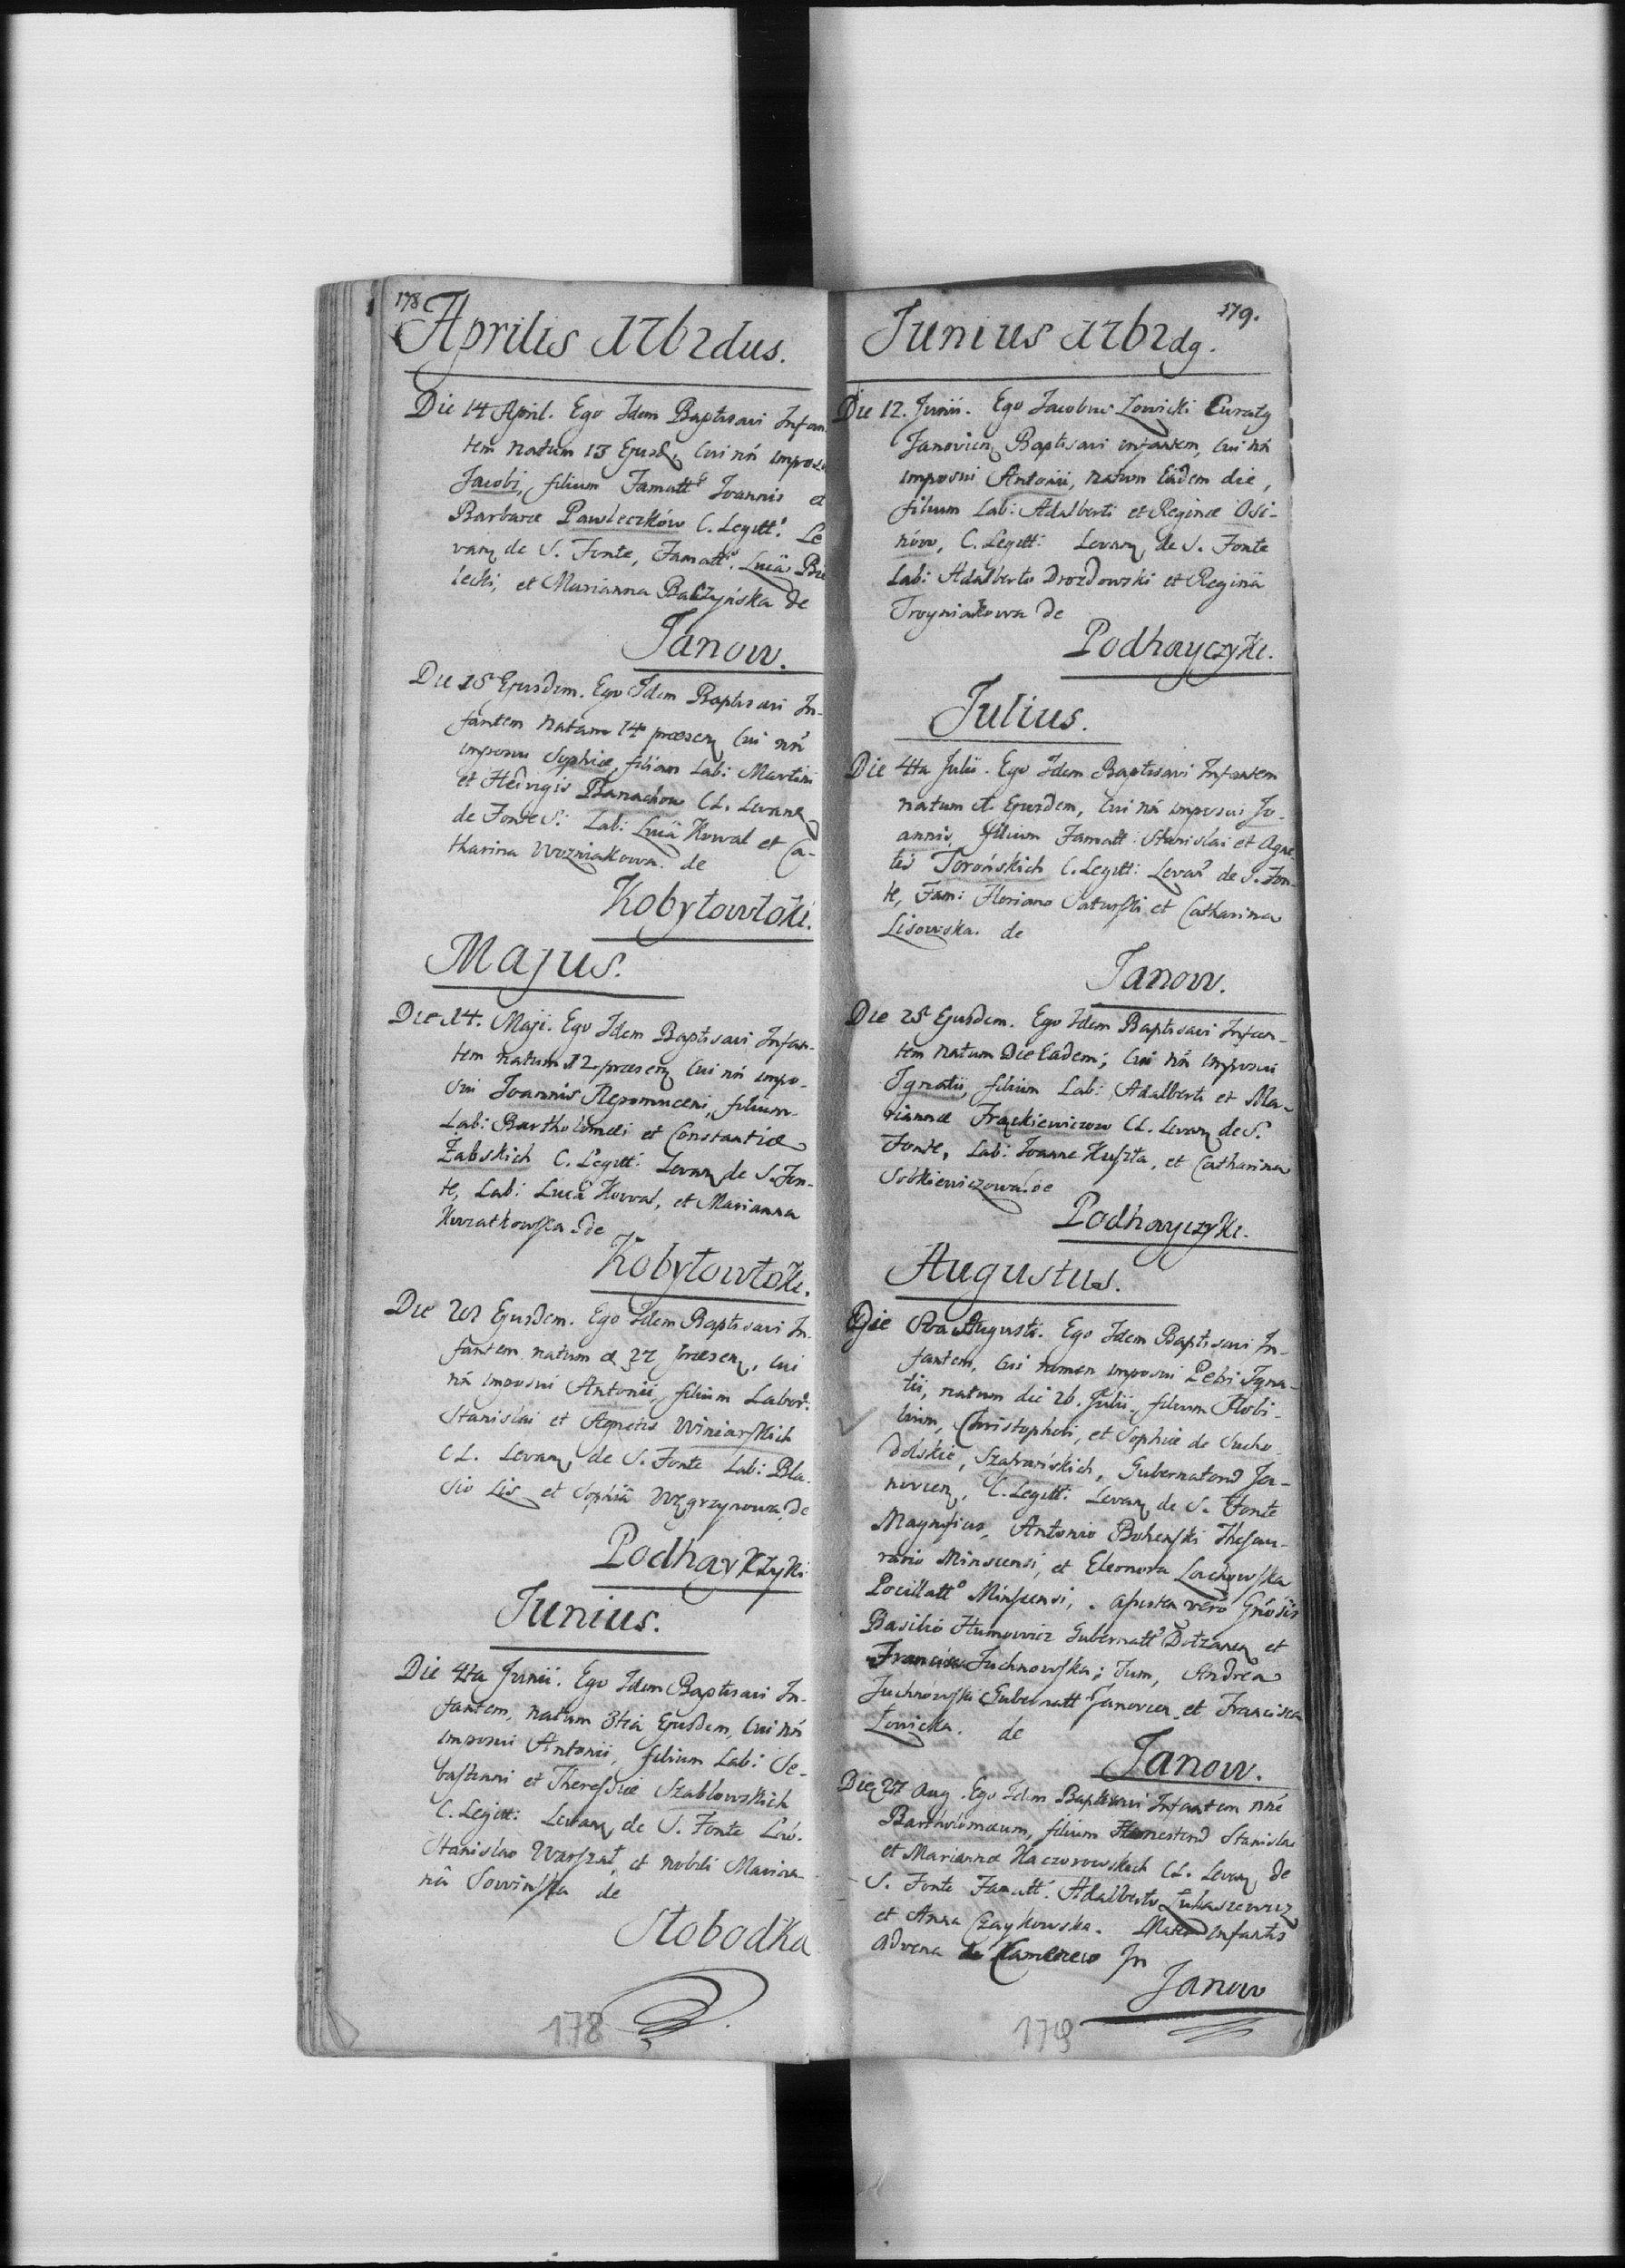 178
Aprilis 1762dus.
Die 14 April. Ego Idem Baptisavi Infan
tem natum 13 Ejusd, cui nn imposui
Jacobi, filium Famatt Joannis et
Barbaræ Pawleczków C. Legitt: Le
van de S. Fonte, Famatt: Lucâ Bie
lecki, et Marianna Baczyńska de
Janow.
Die 15 Ejusdem. Ego Idem Baptisavi In-
fantem natam 14 præsen cui nn
imposui Sophiæ, filiam Lab: Martini
et Hedvigis Banachow CL. Levan
de Fonte S: Lab: Lucâ Kowal et Ca-
tharina Wozniakowa. de
Kobyłowłoki.
Majus.
Die 14. Maji. Ego Idem Baptisavi Infan-
tem natum 12 præsen cui nn impo-
sui Joannis Nepomuceni, filium
Lab: Bartholomæi et Constantiæ
Żabskich C. Legitt: Levan de S. Fon-
te, Lab: Lucâ Kowal, et Marianna
de
Kobyłowłoki.
Die Ejusdem. Ego Idem Baptisavi In-
fantem natum præsen, cui
nn imposui Antonii, filium Labor:
Stanislai et Agnetis Winiarskich
CL. Levan, de S. Fonte Lab: Bla-
sio Lis et Sophiâ Węgrzynowa, de
Podhayczyki
Junius.
Die 4ta Junii. Ego Idem Baptisavi In-
fantem, natum 3tia Ejusdem, cui nn
imposui Antonii, filium Lab: Se-
bastiani et Theressiæ Szablowskich
C. Legitt: Levan, de S. Fonte
Stanislao Warszat, et nobili Marian-
nâ Sowinska de
Słobodka
178
179.
Junius 1762dg.
Die 12. Junii. Ego Jacobus Łowicki Curatg
Janovien, Baptisavi infantem, cui nn
imposui Antonii, natum Eâdem die,
filium Lab: Adalberti et Reginæ Osi-
nów, C. Legitt: Levan, de S. Fonte
Lab: Adalberto Drozdowski et Reginâ
Troyniakowa de
Podhayczyki.
Julius.
Die 4ta Julii. Ego Idem Baptisavi Infantem
natum Ejusdem, cui nn imposui Jo-
annis, filium Famatt: Stanislai et Agne-
tis Torońskich C. Legitt: Levan de S. Fon-
te, Fam: Floriano et Catharina
Lisowska. de
Janow.
Die 25 Ejusdem. Ego Idem Baptisavi Infan-
tem natum Die Eadem; cui nn imposui
Ignatii, filium Lab: Adalberti et Ma-
riannæ Frąckiewiczow CL. Levan de S.
Fonte, Lab: Joanne Huszta, et Catharina
Sobkiewiczowa. de
Podhayczyki.
Augustus.
Die Augusti. Ego Idem Baptisavi In-
fantem, cui nomen imposui Petri Igna-
tii, natum die 26. Julii, filium Nobi-
lium, Christophori, et Sophiæ de Sucho-
dolskie, Szafrańskich, Gubernatorus Ja-
novien, C. Legitt: Levan de S. Fonte
Magnificus, Antonio Bohenski Thesau-
rario Minscensi, et Eleonora Lachowska
Pocillatt Minscensi, Assisten vero Gnosis
Basilio Humowicz Gubernatt et
Francisca Juchnowska; Tum, Andrea
Juchnowski Gubernatt Janovien, et Francisca
Łowicka. de
Janow.
Die 27 Aug. Ego Idem Baptisavi Infantem nne
Bartholomæum, filium Stanislai
et Mariannæ Kaczorowskich CL. Levan, de
S. Fonte Famatt: Adalberto Łukaszewicz
et Anna Czaykowska. Mater Infantis
advena de In
Janow
179